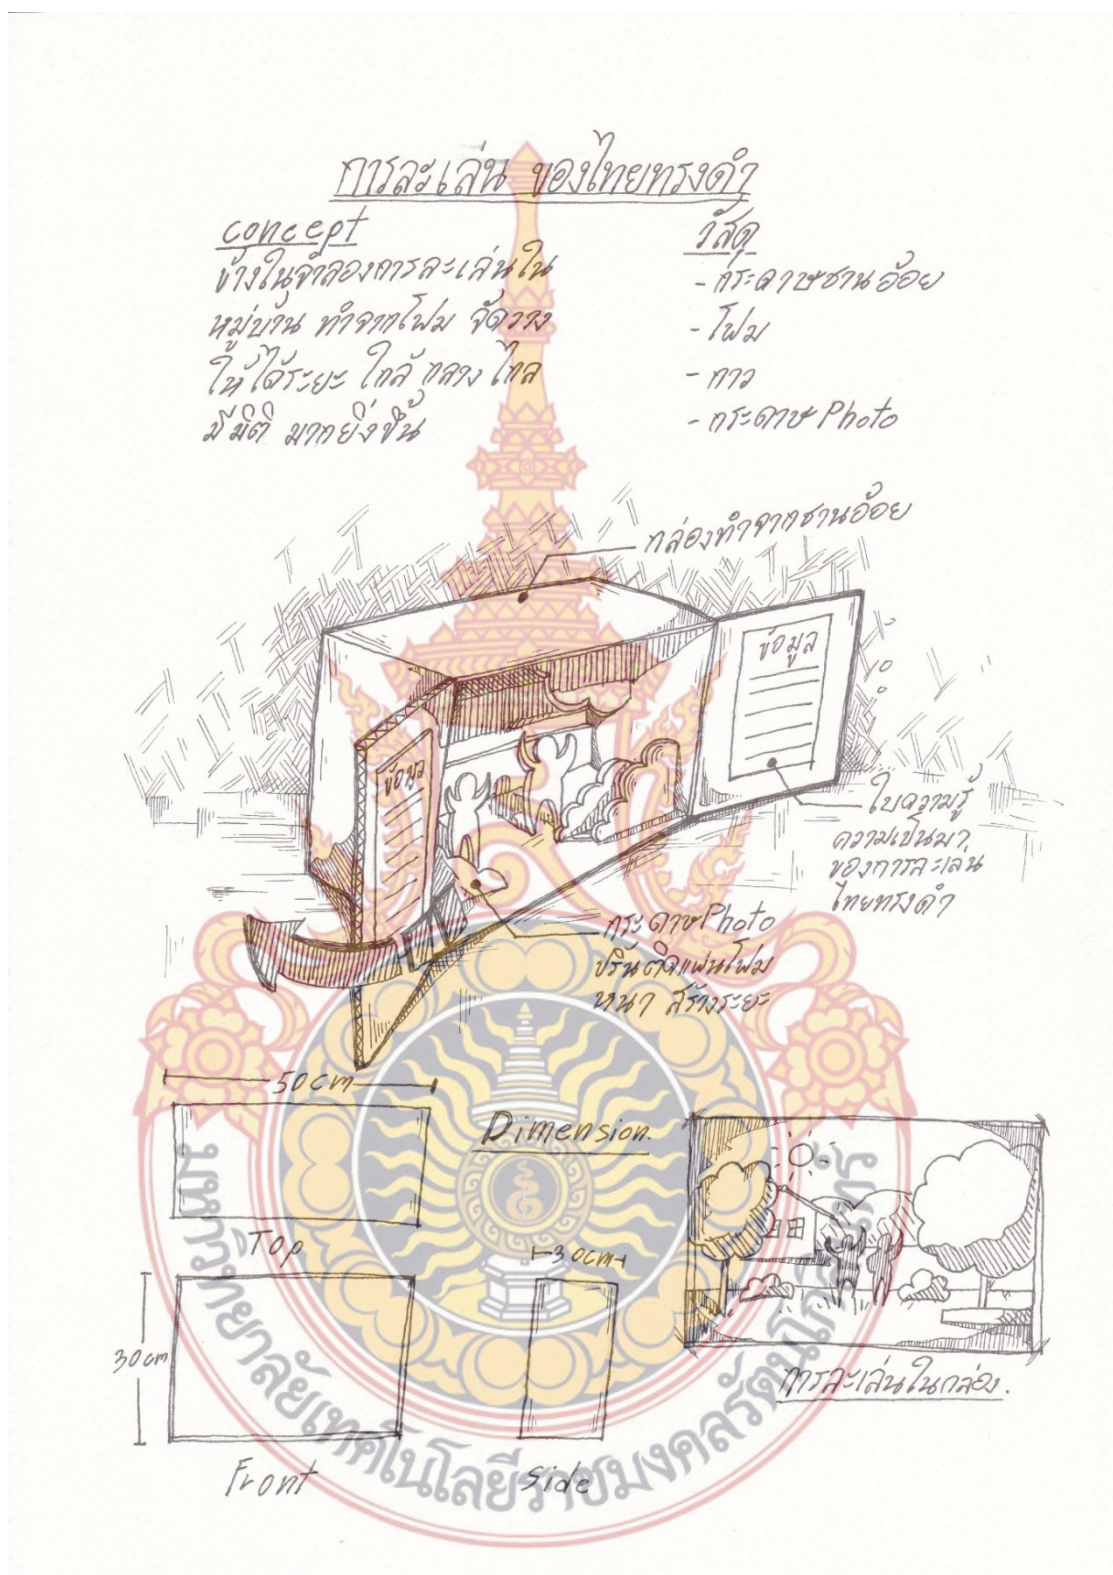 การละเล่น ของไทยทรงดำ
concept
ข้างในจำลองการละเล่นใน
หมู่บ้าน ทำจากโฟม จัดวาง
ให้ได้ระยะ ใกล้ กลาง ไกล
มีมิติ มากยิ่งขึ้น
วัสดุ
- กระดาษชานอ้อย
- โฟม
- กาว
- กระดาษ Photo
กล่องทำจากชานอ้อย
ข้อมูล
ข้อมูล
ใบความรู้
ความเป็นมา
ของการละเล่น
ไทยทรงดำ
กระดาษ Photo
ปริ้นติดแผ่นโฟม
หนา สร้างระยะ
50 cm
Dimension.
Top
30cm
30 cm
การละเล่นในกล่อง.
Front
Side
มหาวิทยาลัยเทคโนโลยีราชมงคลรัตนโกสินทร์